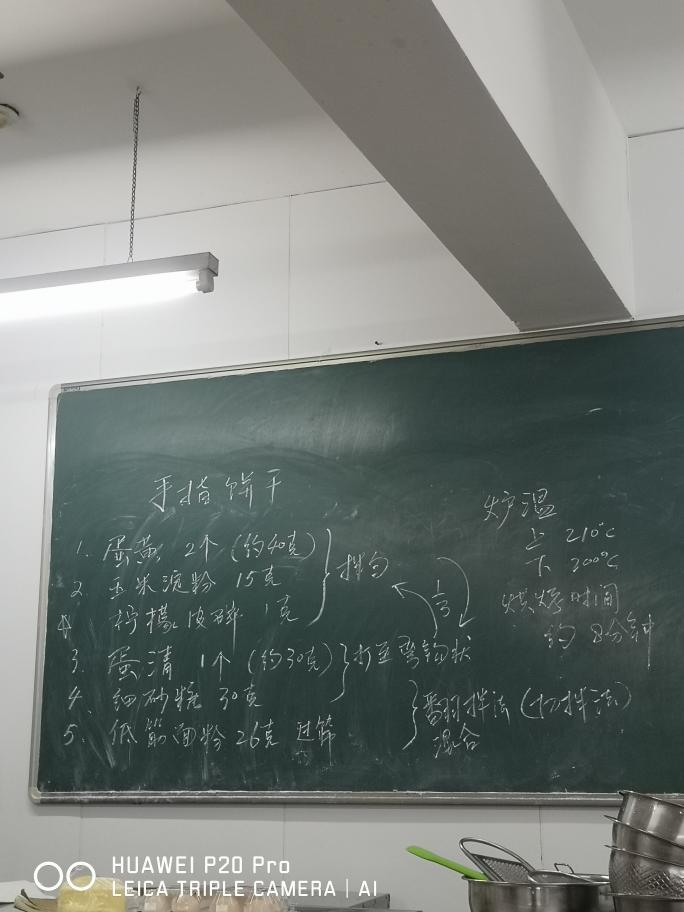 手指饼干
1. 蛋黄 2个 (约40克)
2. 玉米淀粉 15克
柠檬皮碎 1克
} 拌匀
3. 蛋清 1个 (约30克)
4. 细砂糖 30克
} 打至弯钩状
5. 低筋面粉 26克 过筛
1/3
} 翻拌法 (切拌法)
混合
炉温
上 210℃
下 200℃
烘烤时间
约 8分钟
HUAWEI P20 Pro
LEICA TRIPLE CAMERA | AI